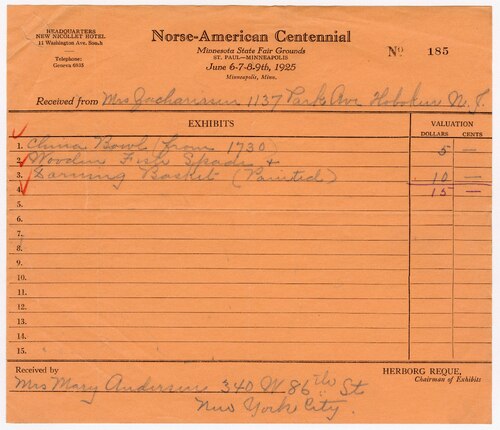 HEADQUARTERS
NEW NICOLLET HOTEL
11 Washington Ave. South
Telephone:
Geneva 6835
Norse-American Centennial
Minnesota State Fair Grounds
ST. PAUL—MINNEAPOLIS
June 6-7-8-9th, 1925
Minneapolis, Minn.
No 185
Received from Mrs Zacharissen 1137 Park Ave Hoboken N. J.
EXHIBITS
VALUATION
DOLLARS CENTS
1. China Bowl (from 1730) 5 —
2. Wooden Fish Spade &
3. Darning Basket (Painted) 10 —
4. 15 —
5.
6.
7.
8.
9.
10.
11.
12.
13.
14.
15.
Received by
HERBORG REQUE,
Chairman of Exhibits
Mrs Mary Andersen 340 W 86th St
New York City.